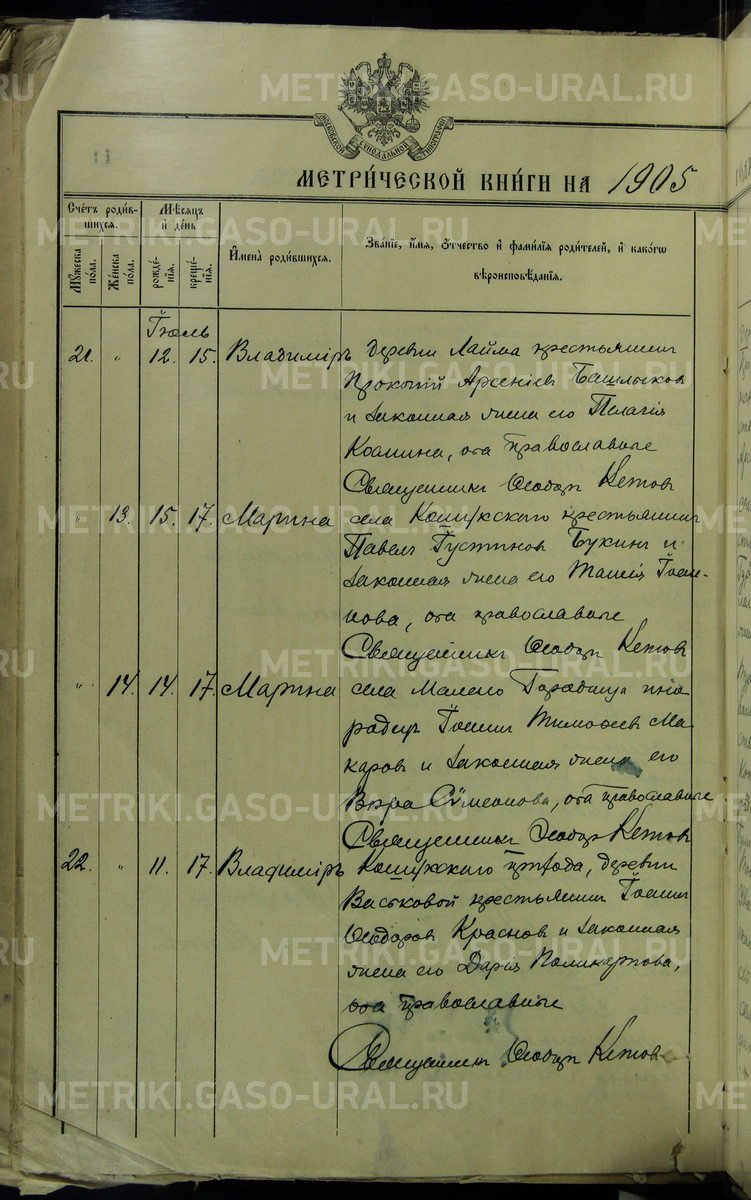 METRIKI.GASO-URAL.RU
МОСКОВСКОЙ СѴНОДАЛЬНОЙ ТИПОГРАФІИ
МЕТРИ́ЧЕСКОЙ КНИ́ГИ НА 1905
Сче́тъ роди́в-
шихся.
Му́жеска по́ла.
Же́нска по́ла.
Мѣ́сяцъ
и҆ де́нь
рожде́-
нія.
креще́-
нія.
И҆мена̀ роди́вшихся.
Зва́ніе, и҆́мя, ѻ҆́тчество и҆ фами́лія роди́телей, и҆ како́гѡ
вѣроисповѣ́данія.
Іюль
21. " 12. 15. Владиміръ деревни Лайма крестьянинъ
Прокопій Арсеніев Башлыков
и законная жена его Пелагія
Козмина, оба православные
Священникъ Ѳеодоръ Кетов
" 13. 15. 17. Марина села Кошукского крестьянинъ
Павелъ Іустинов Букинъ и
законная жена его Таисія Іоан-
нова, оба православные
Священникъ Ѳеодоръ Кетов
" 14. 14. 17. Марина села Малаго Городища ино
родецъ Іоаннъ Тимофеев Ма
каров и законная жена его
Вѣра Сѵмеонова, оба православные
Священникъ Ѳеодоръ Кетов
22. " 11. 17. Владиміръ Кошукского прихода, деревни
Васьковой крестьянинъ Іоаннъ
Ѳеодоров Краснов и законная
жена его Дарія Поликарпова,
оба православные
Священникъ Ѳеодоръ Кетов